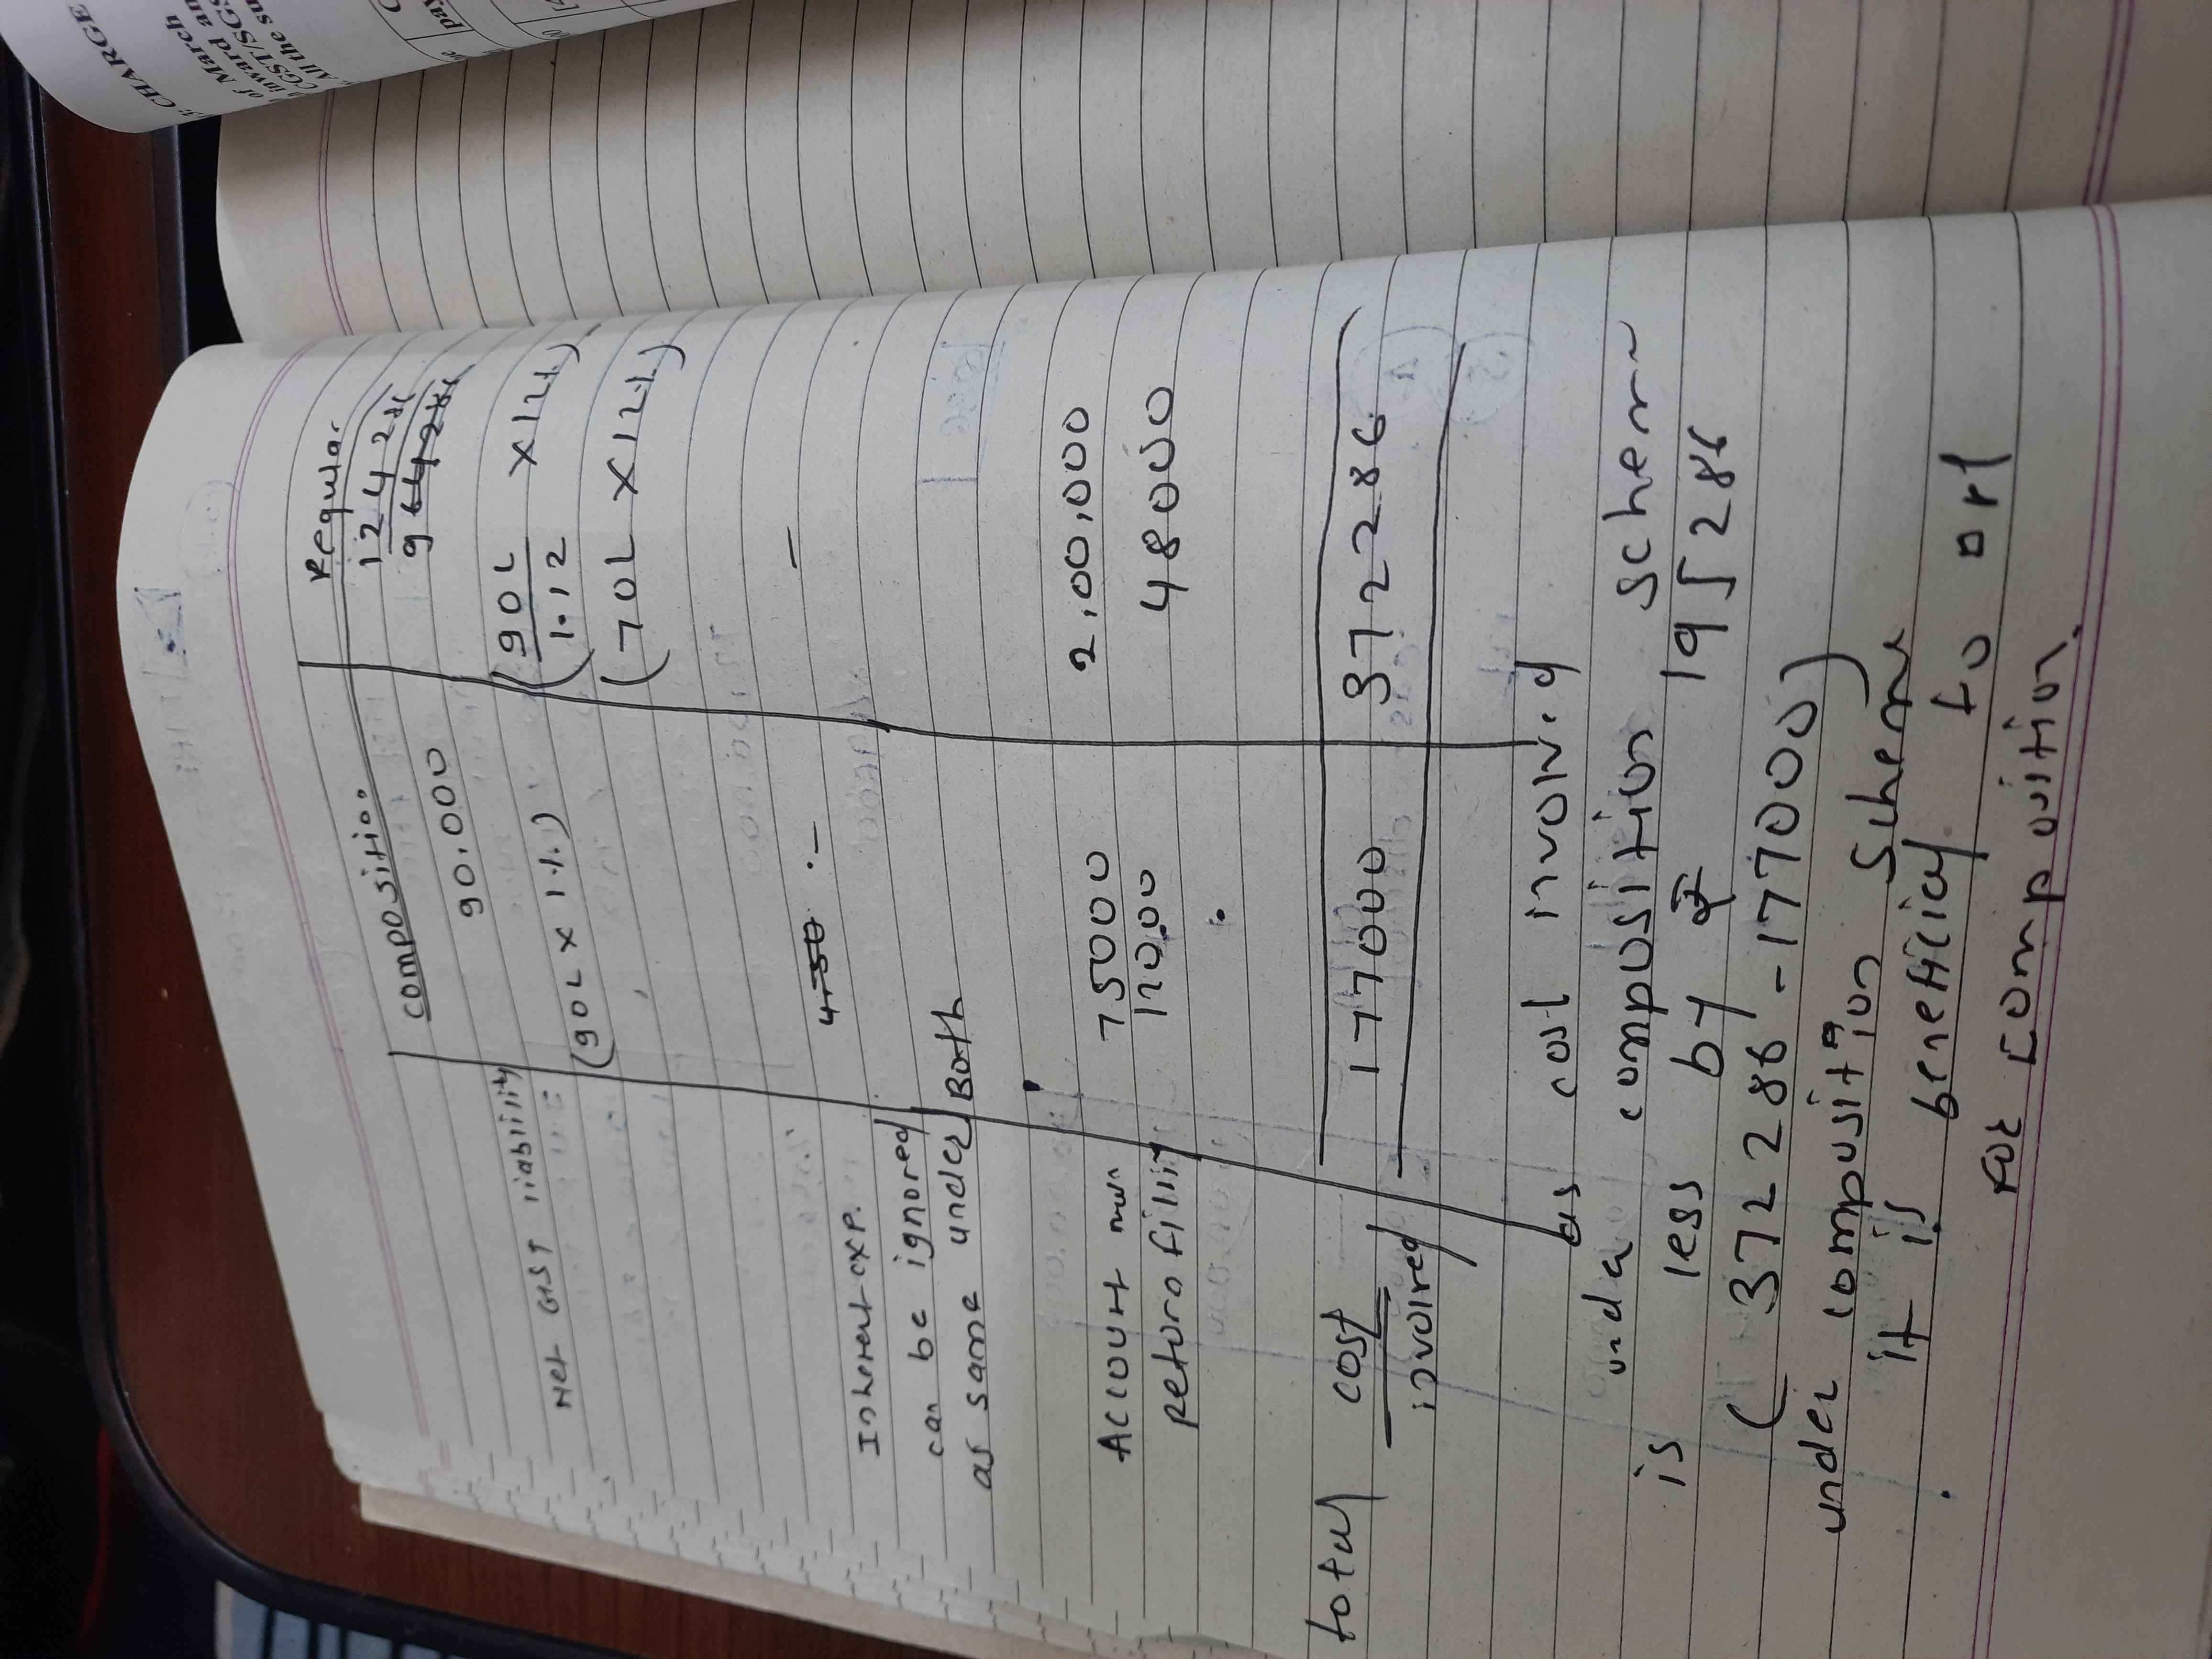 : CHARGE
of March
inward an
CGST/SGS
All the su
pay
Composition Regular
124286
964286
90,000
Net GST liability
(90L x 1%) (90L/1.12 x 12%)
(70L x 12%)
Inherent exp. 450 - -
can be ignored
as same under Both
Account man 75000 2,00,000
return filling 12000 48000
total cost 177000 372286
involved
as cost involved
under composition scheme
is less by ₹ 195286
( 372286 - 177000)
under composition scheme
it is beneficial to opt
for composition.